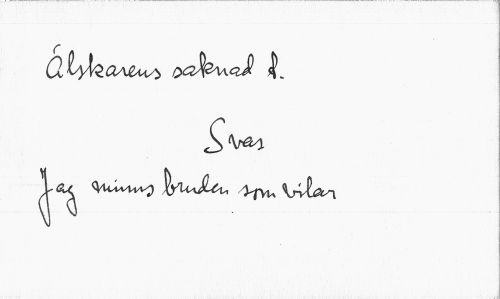 Älskarens saknad d.
Svar
Jag minns bruden som vilar